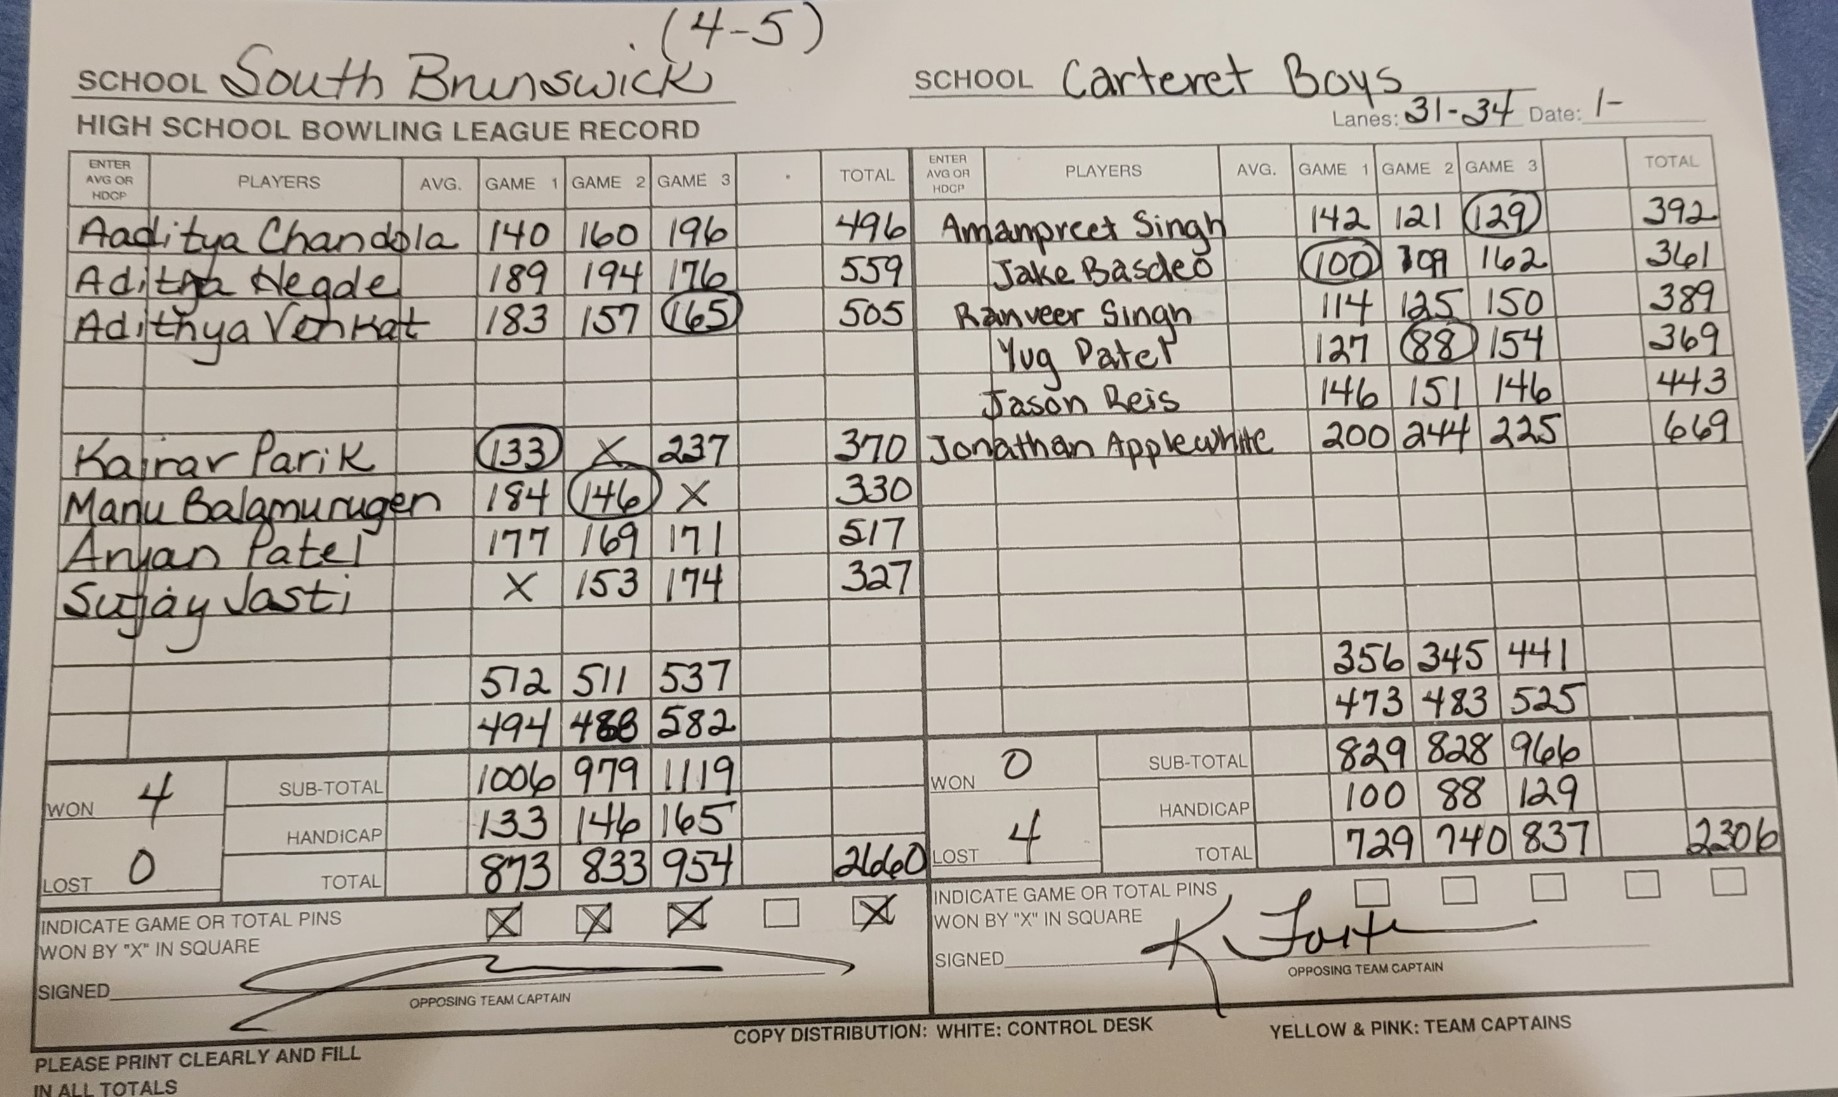 (4-5)
SCHOOL South Brunswick SCHOOL Carteret Boys
HIGH SCHOOL BOWLING LEAGUE RECORD Lanes: 31-34 Date: 1-
ENTER AVG OR HDCP PLAYERS AVG. GAME 1 GAME 2 GAME 3 TOTAL ENTER AVG OR HDCP PLAYERS AVG. GAME 1 GAME 2 GAME 3 TOTAL
Aaditya Chandola 140 160 196 496 Amanpreet Singh 142 121 129 392
Aditya Hegde 189 194 176 559 Jake Basdeo 100 99 162 361
Adithya Venkat 183 157 165 505 Ranveer Singh 114 125 150 389
Yug Patel 127 88 154 369
Jason Reis 146 151 146 443
Kairav Parik 133 X 237 370 Jonathan Applewhite 200 244 225 669
Manu Balamurugen 184 146 X 330
Aryan Patel 177 169 171 517
Sujay Jasti X 153 174 327
512 511 537 356 345 441
494 468 582 473 483 525
WON 4 SUB-TOTAL 1006 979 1119 WON 0 SUB-TOTAL 829 828 966
HANDICAP 133 146 165 HANDICAP 100 88 129
LOST 0 TOTAL 873 833 954 2660 LOST 4 TOTAL 729 740 837 2306
INDICATE GAME OR TOTAL PINS X X X X INDICATE GAME OR TOTAL PINS
WON BY "X" IN SQUARE WON BY "X" IN SQUARE
SIGNED SIGNED K.
OPPOSING TEAM CAPTAIN OPPOSING TEAM CAPTAIN
COPY DISTRIBUTION: WHITE: CONTROL DESK YELLOW & PINK: TEAM CAPTAINS
PLEASE PRINT CLEARLY AND FILL
IN ALL TOTALS